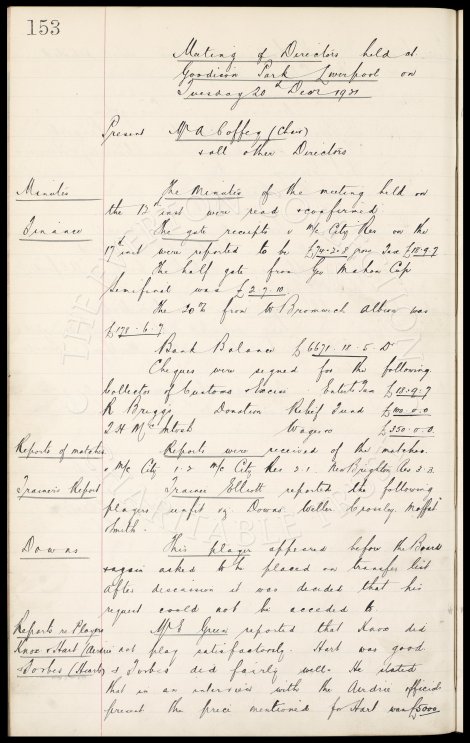 153
Meeting of Directors held at
Goodison Park Liverpool on
Tuesday 20th Decr 1921
Present Mr A Coffey (Chair)
& all other Directors
Minutes The Minutes of the meeting held on
the 13th inst were read & confirmed.
Finance The gate receipts v M/c City Res on the
17th inst were reported to be £74-3-8 gross Tax £18-9-7
The half gate from Geo Mahon Cup
Semifinal was £2-7-10
The 20% from W Bromwich Albion was
£178-6-7
Bank Balance £6671-18-5 Dr
Cheques were signed for the following.
Collector of Customs & Excise Enterts Tax £18-9-7
R Briggs Donation Relief Fund £100-0-0
D H McIntosh Wages £350-0-0
Reports of matches Reports were received of the matches.
v M/c City 1-2 M/c City Res 2.1 New Brighton Res 3.3.
Trainers Report Trainer Elliott reported the following
players unfit vz Downs Weller Crossley Moffat
Smith.
Downs This player appeared before the Board
& again asked to be placed on transfer list
After discussion it was decided that his
request could not be acceded to
Reports re Players Mr E Green reported that Knox did
Knox & Hart (Airdrie) not play satisfactorily. Hart was good
& Forbes (Hearts) & Forbes did fairly well. He stated
that in an interview with the Airdrie officials
present the price mentioned for Hart was £5000